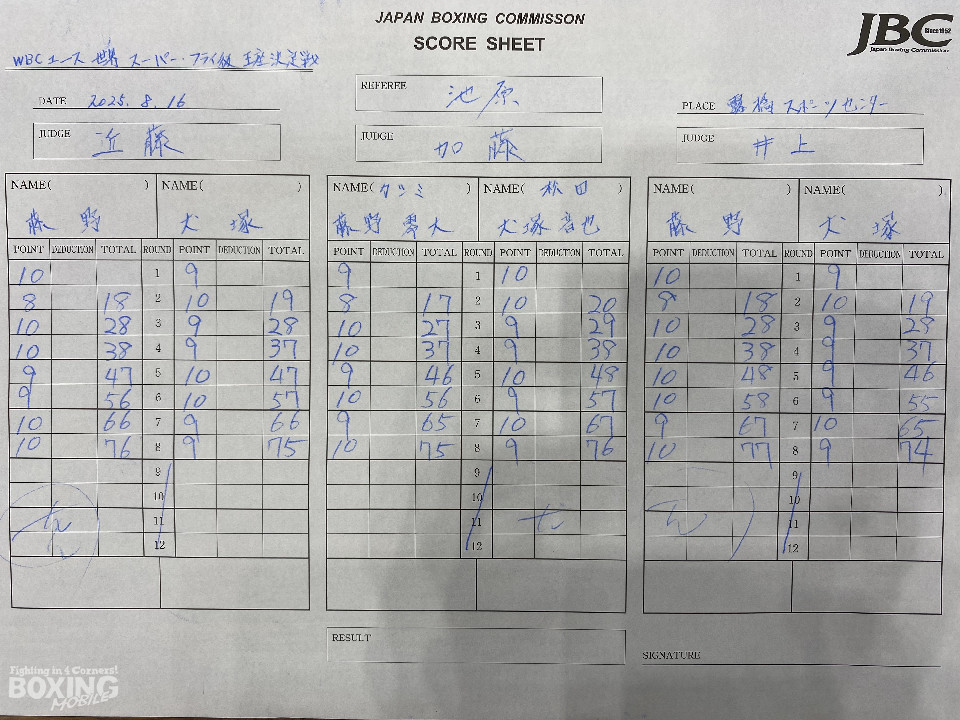 JAPAN BOXING COMMISSON
SCORE SHEET
JBC
Since1952
Japan Boxing Commission
WBCユース世界スーパー・フライ級王座決定戦
DATE 2025.8.16
REFEREE 池原
PLACE 露橋スポーツセンター
JUDGE 近藤
JUDGE 加藤
JUDGE 井上
NAME( ) NAME( )
藤野 犬塚
POINT DEDUCTION TOTAL ROUND POINT DEDUCTION TOTAL
10 1 9
8 18 2 10 19
10 28 3 9 28
10 38 4 9 37
9 47 5 10 47
9 56 6 10 57
10 66 7 9 66
10 76 8 9 75
9
10
11
12
NAME(カツミ) NAME(松田)
藤野 犬塚音也
POINT DEDUCTION TOTAL ROUND POINT DEDUCTION TOTAL
9 1 10
8 17 2 10 20
10 27 3 9 29
10 37 4 9 38
9 46 5 10 48
10 56 6 9 57
9 65 7 10 67
10 75 8 9 76
9
10
11
12
NAME( ) NAME( )
藤野 犬塚
POINT DEDUCTION TOTAL ROUND POINT DEDUCTION TOTAL
10 1 9
8 18 2 10 19
10 28 3 9 28
10 38 4 9 37
10 48 5 9 46
10 58 6 9 55
9 67 7 10 65
10 77 8 9 74
9
10
11
12
RESULT
SIGNATURE
Fighting in 4 Corners!
BOXING
MOBILE